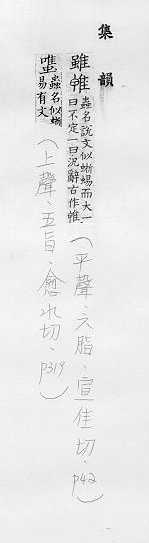 集韻
雖帷 蟲名說文似蜥蜴而大一
曰不定一曰況辭古作帷
（平聲・六脂・宣佳切・p42）
蟲名似蜥
易有文
（上聲・五旨・愈水切・p319）